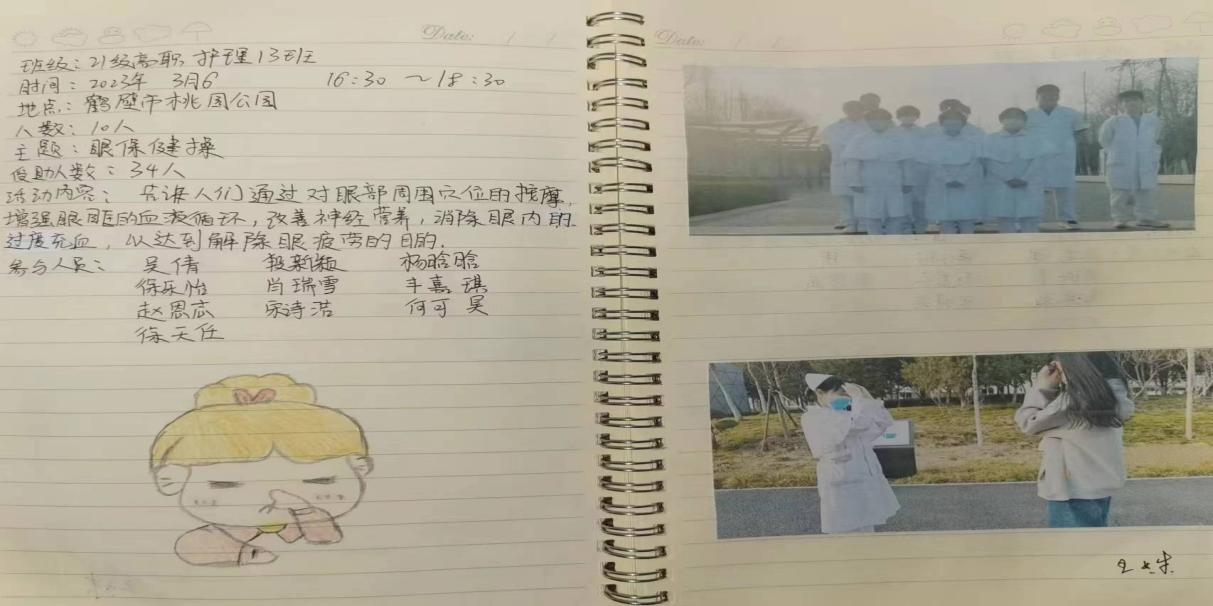 Date: / /
班级：21级高职 护理13班
时间：2023年 3月6 16:30 ～18:30
地点：鹤壁市桃园公园
人数：10人
主题：眼保健操
受助人数：34人
活动内容： 告诉人们通过对眼部周围穴位的按摩，
增强眼眶的血液循环，改善神经营养，消除眼内的
过度充血，以达到解除眼疲劳的目的．
参与人员： 吴倩 段新颖 杨晗晗
徐乐怡 肖瑞雪 丰嘉琪
赵恩 宋诗浩 何可昊
徐天任
Date: / /